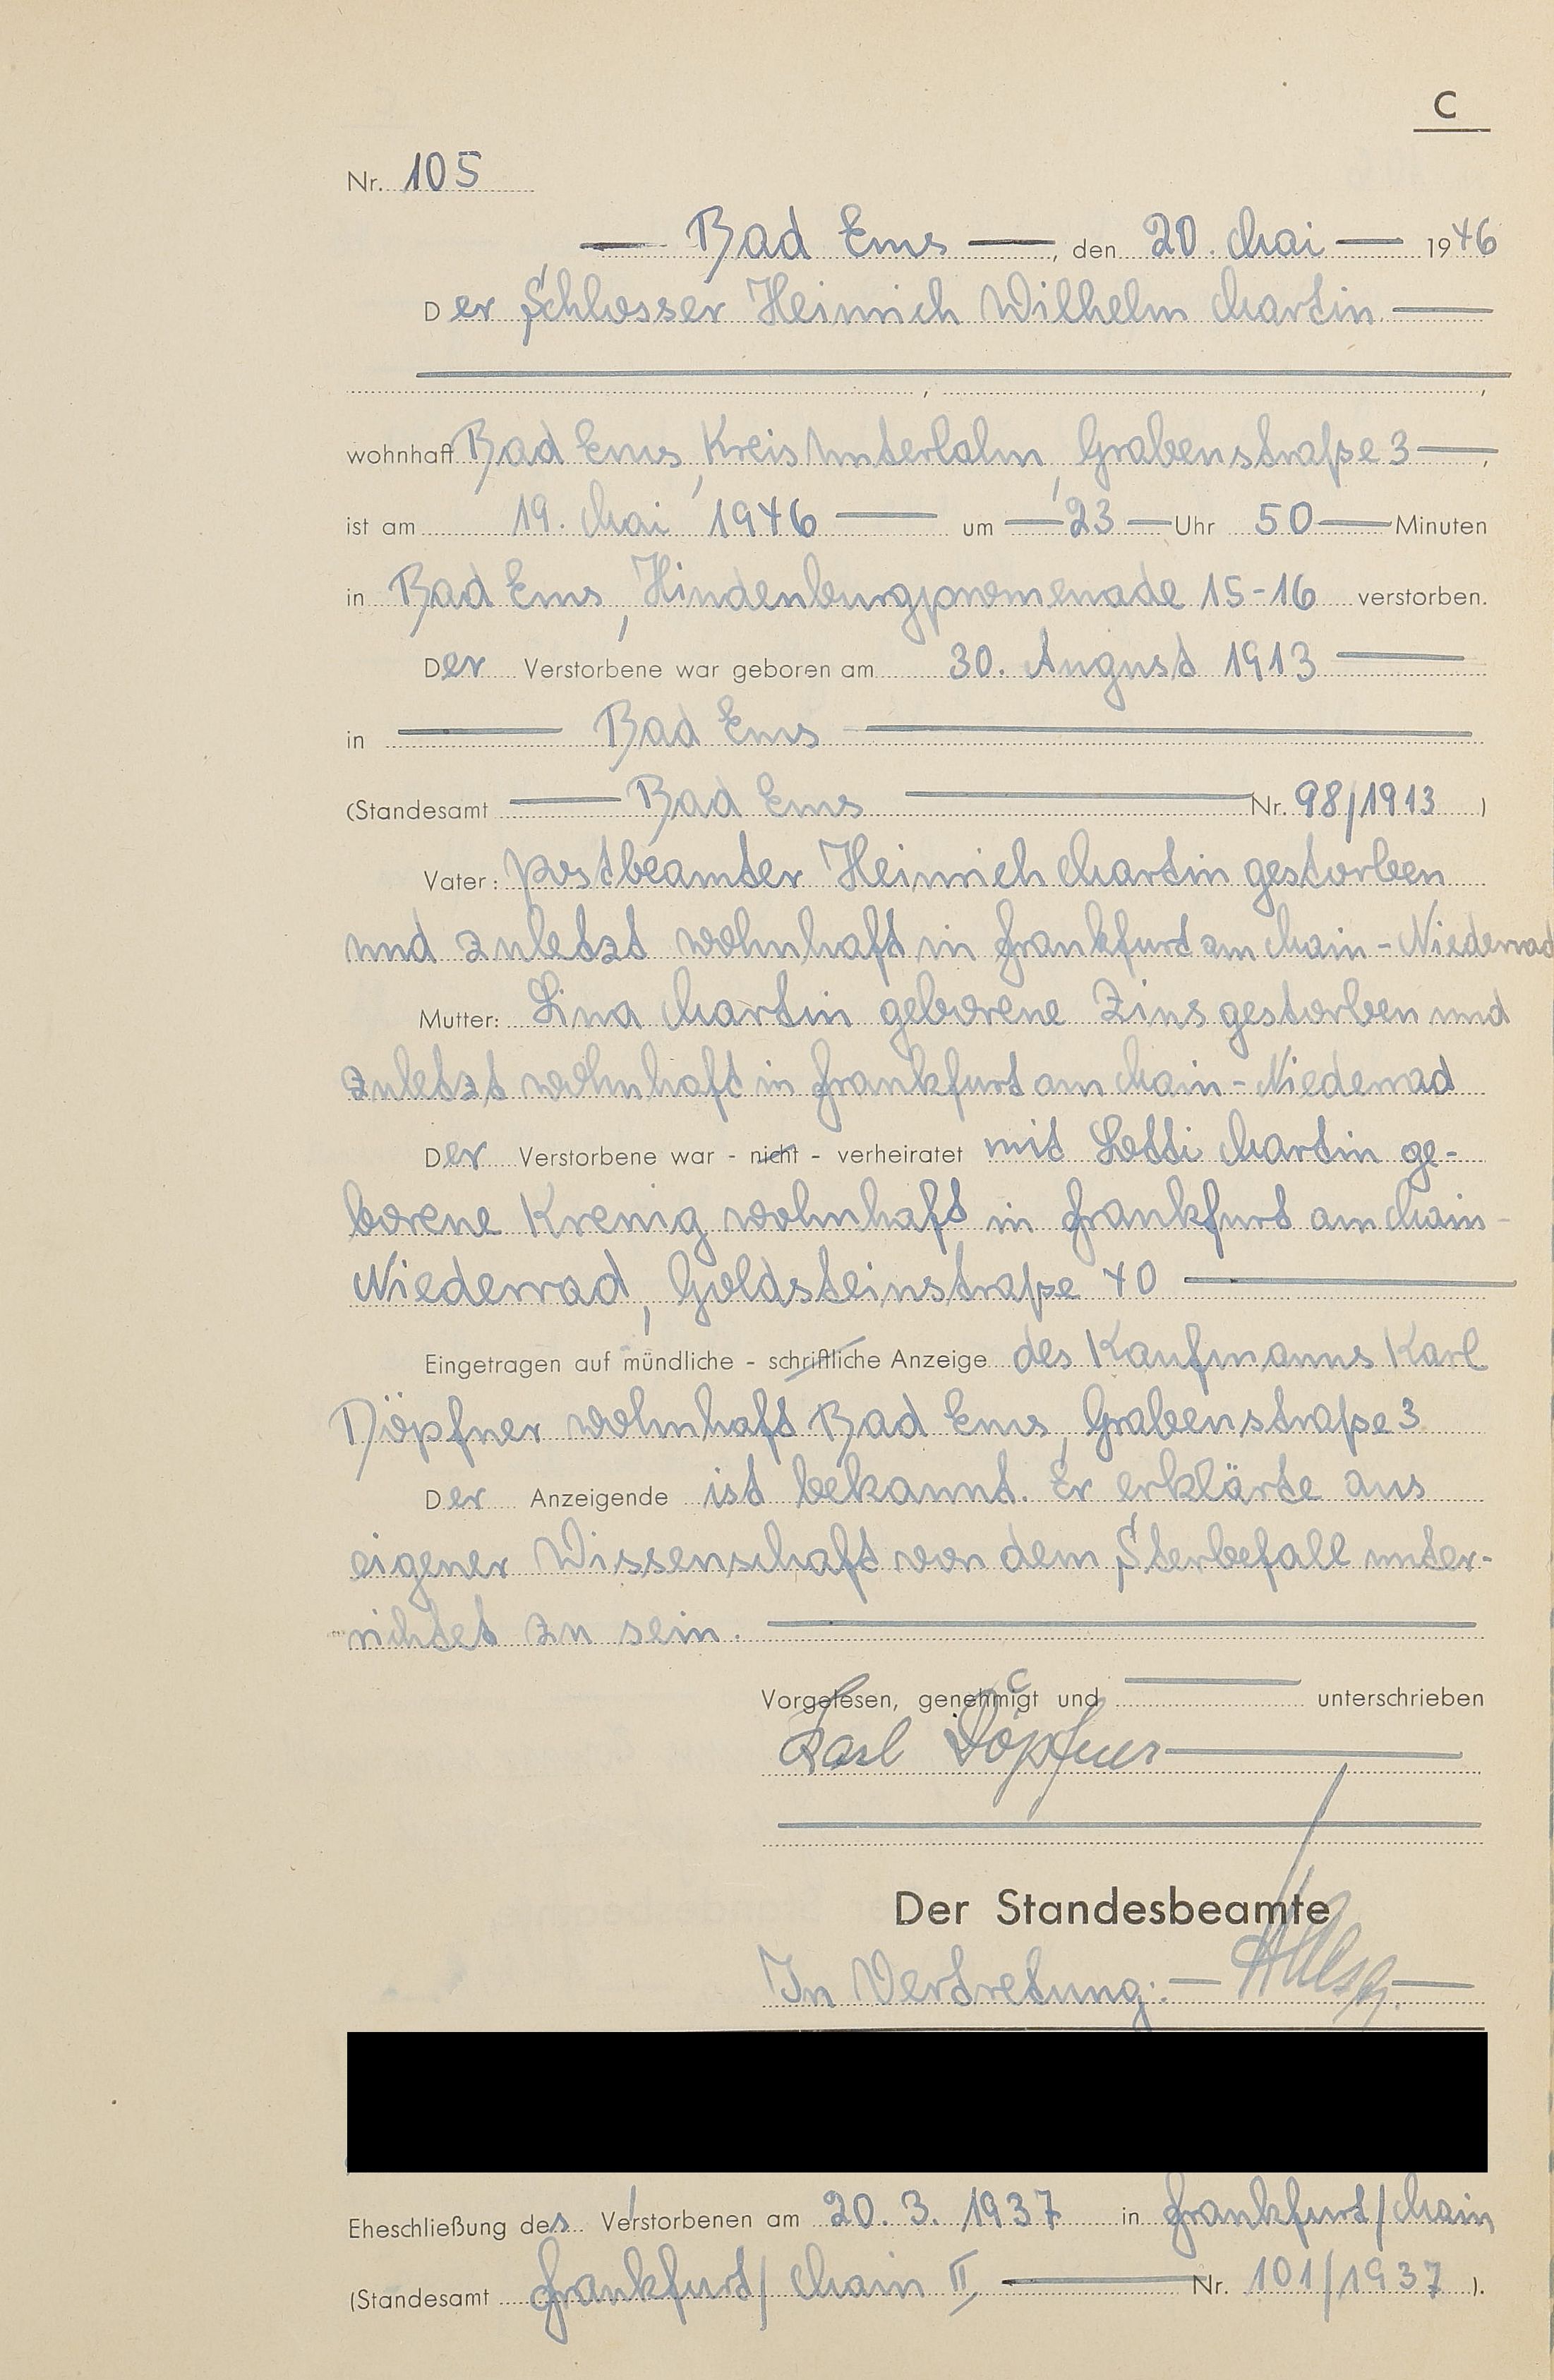 C
Nr. 105
Bad Ems, den 20. Mai 1946
Der Schlosser Heinrich Wilhelm Martin
wohnhaft Bad Ems, Kreis Unterlahn, Grabenstraße 3,
ist am 19. Mai 1946 um 23 Uhr 50 Minuten
in Bad Ems, Hindenburgpromenade 15-16 verstorben.
Der Verstorbene war geboren am 30. August 1913
in Bad Ems
(Standesamt Bad Ems Nr. 98/1913)
Vater: Postbeamter Heinrich Martin gestorben
und zuletzt wohnhaft in Frankfurt am Main-Niederrad
Mutter: Lina Martin geborene Zins gestorben und
zuletzt wohnhaft in Frankfurt am Main-Niederrad
Der Verstorbene war - nicht - verheiratet mit Lotti Martin ge-
borene Krenig wohnhaft in Frankfurt am Main-
Niederrad, Goldsteinstraße 40
Eingetragen auf mündliche - schriftliche Anzeige des Kaufmanns Karl
Döpfner wohnhaft Bad Ems, Grabenstraße 3
Der Anzeigende ist bekannt. Er erklärte aus
eigener Wissenschaft von dem Sterbefall unter-
richtet zu sein.
Vorgelesen, genehmigt und unterschrieben
Karl Döpfner
Der Standesbeamte
In Vertretung:
Eheschließung des Verstorbenen am 20. 3. 1937 in Frankfurt/Main
(Standesamt Frankfurt/Main II Nr. 101/1937).